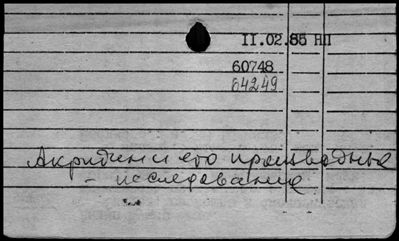 11.02.85 НП
60748
64249
Акридин и его производные
- исследование